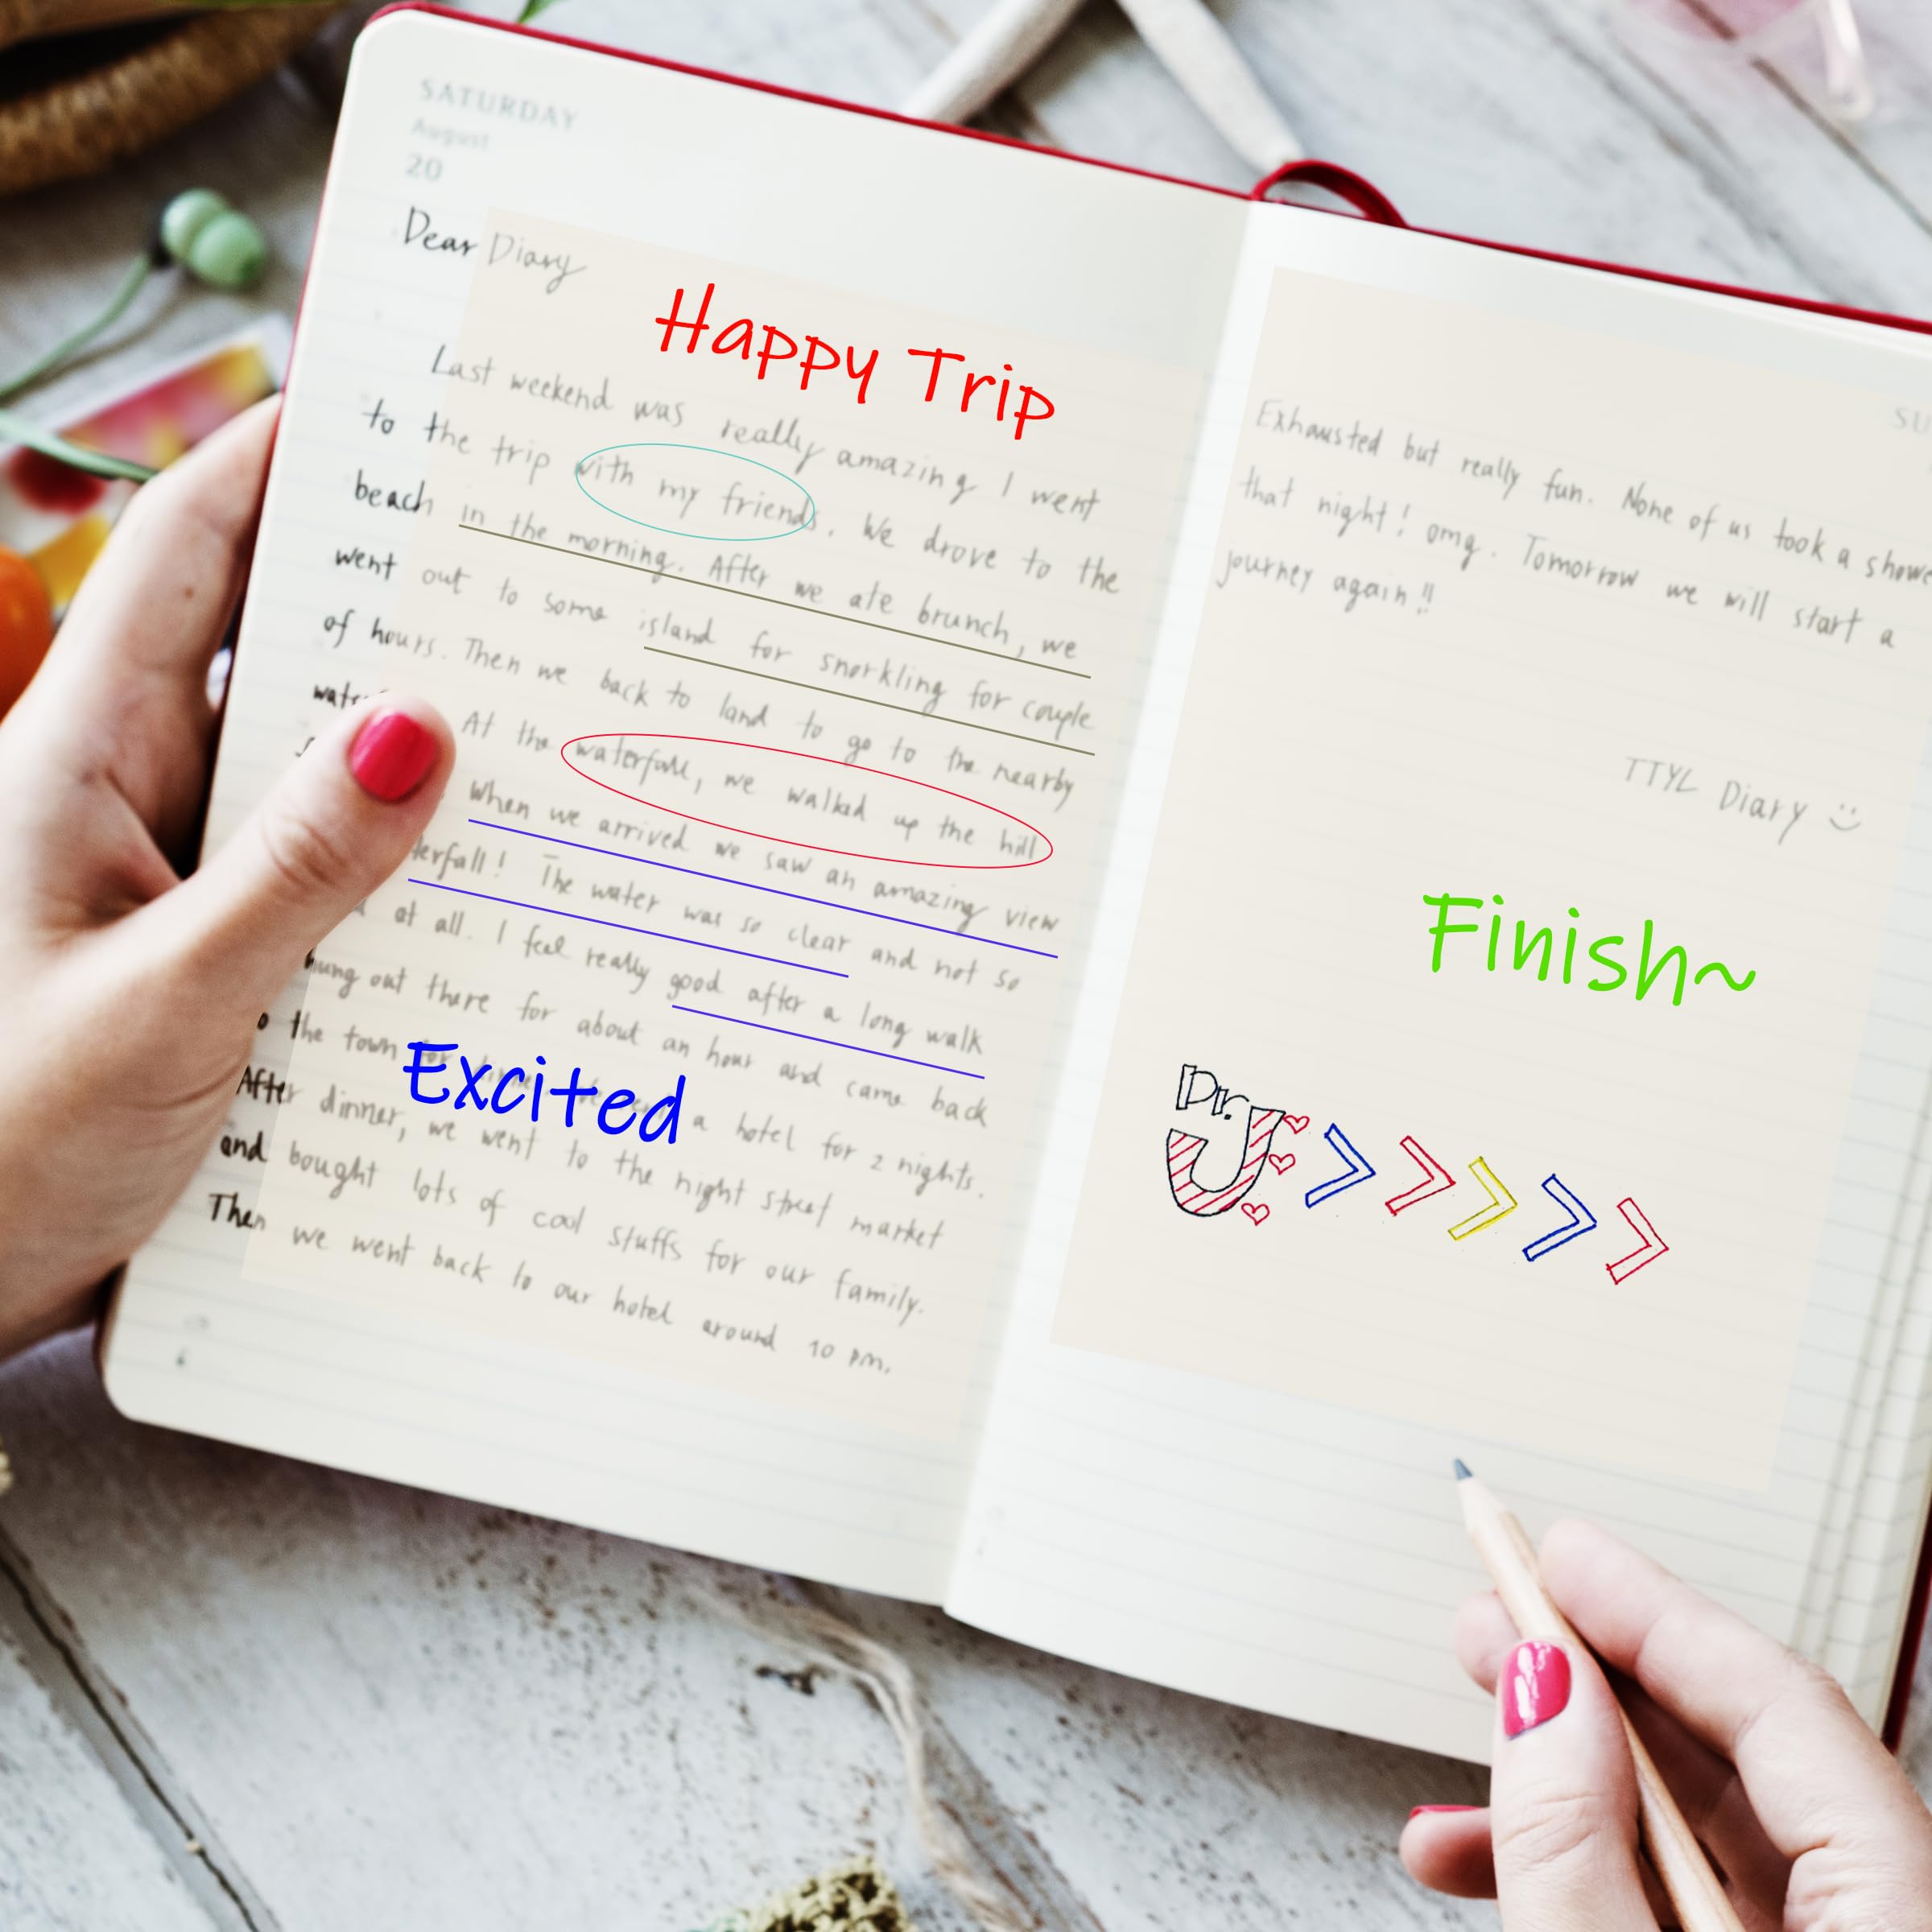 SATURDAY
August
20
Dear Diary
Happy Trip
Last weekend was really amazing I went
to the trip with my friends. We drove to the
beach in the morning. After we ate brunch, we
went out to some island for snorkling for couple
of hours. Then we back to land to go to the nearby
At the waterfall, we walked up the hill
When we arrived we saw an amazing view
erfall! The water was so clear and not so
at all. I feel really good after a long walk
hung out there for about an hour and came back
the town for a hotel for 2 nights.
Excited
After dinner, we went to the night street market
and bought lots of cool stuffs for our family.
Then we went back to our hotel around 10 pm.
SU
Exhausted but really fun. None of us took a showe
that night! omg. Tomorrow we will start a
journey again!!
TTYL Diary
Finish~
Dr.
U